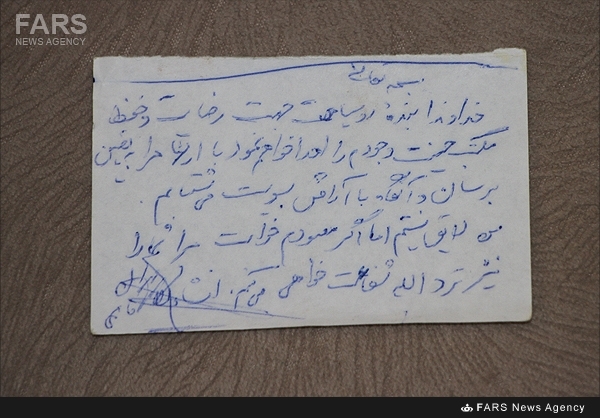 FARS
NEWS AGENCY
بسمه تعالی
خداوندا بنده روسیاهت جهت رضایت و حفظ
مملکت وجودم را اهدا خواهم نمود یا ارتقا مرا به یقین
برسان و آنگاه با آرامش بسویت می شتابم.
من لایق نیستم اما اگر معبودم خواست مرا شما را
نیز نزد الله شفاعت خواهی می کنم. انشاالله
FARS News Agency